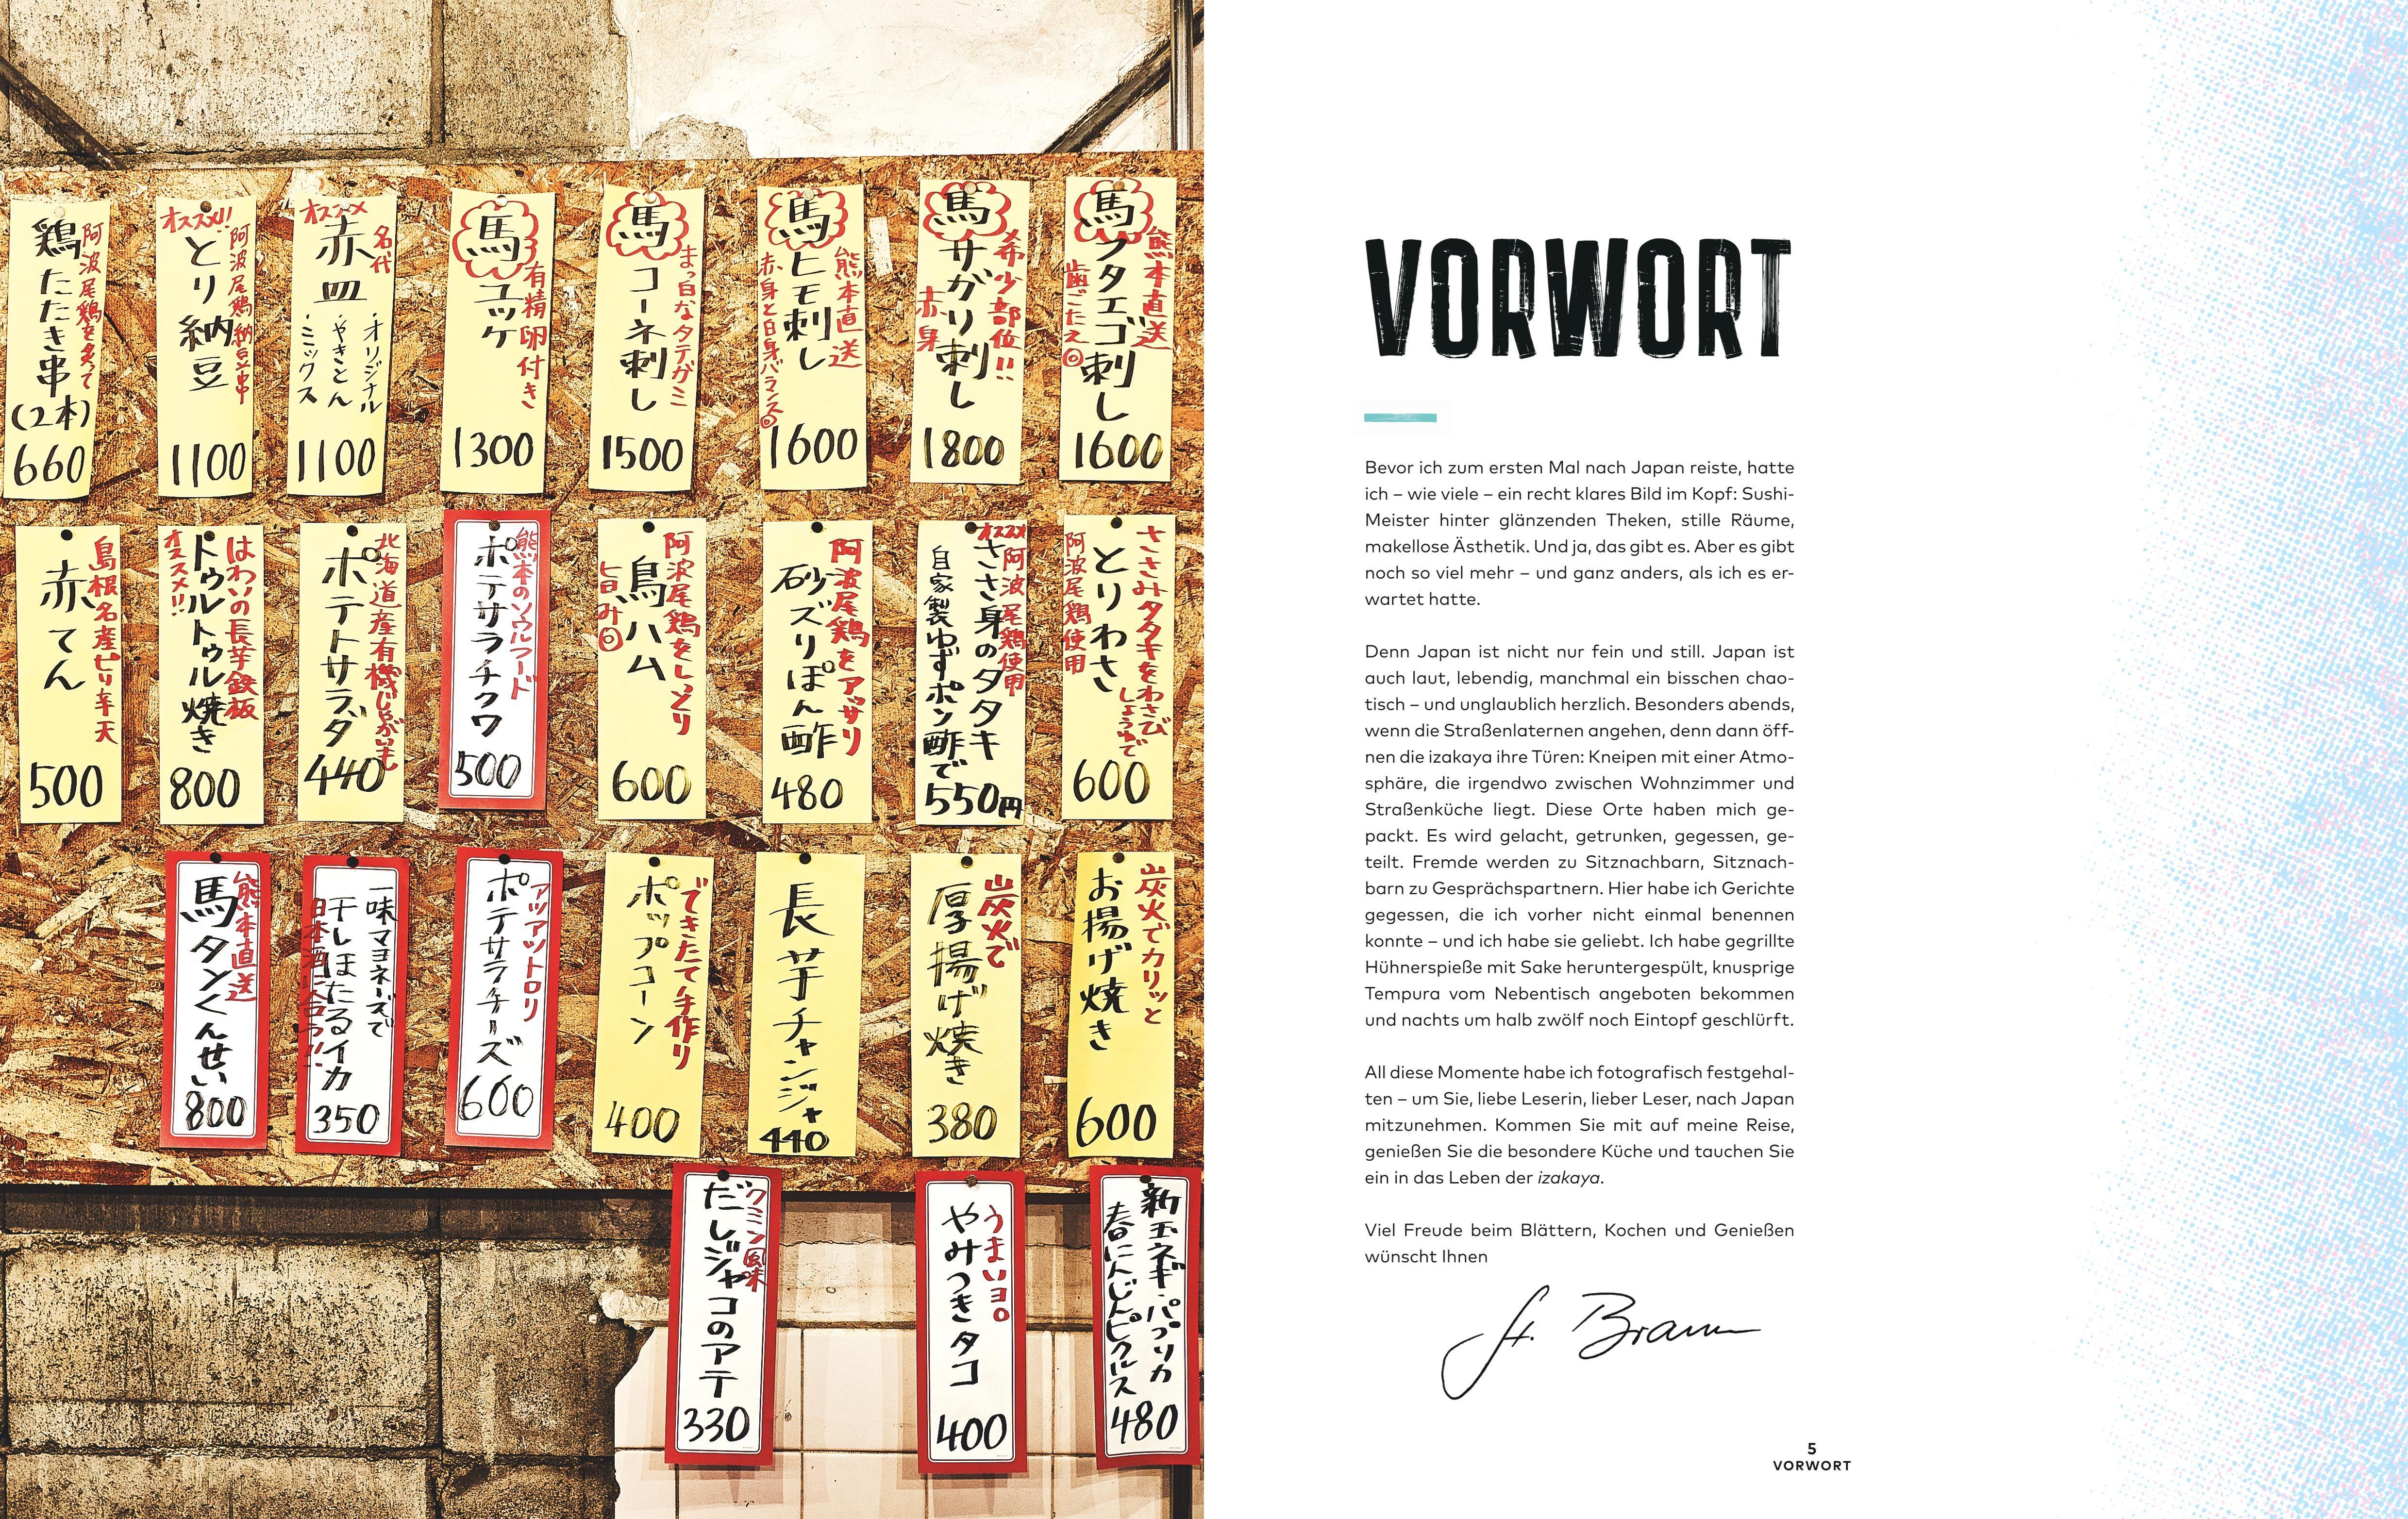 鶏たたき串
(2本)
660
阿波尾鶏を炙って
オススメ!!
とり納豆
阿波尾鶏納豆串
1100
オススメ
名代
赤皿
・オリジナル
・やきとん
・ミックス
1100
馬
ユッケ
有精卵付き
1300
馬
コーネ刺し
まっ白なタテガミ
1500
馬
ヒモ刺し
熊本直送
赤身と白身バランス◎
1600
馬
サガリ刺し
希少部位!!
赤身
1800
馬
フタエゴ刺し
熊本直送
歯ごたえ◎
1600
赤てん
島根名産ピリ辛天
500
オススメ!!
トゥルトゥル焼き
はわいの長芋鉄板
800
ポテトサラダ
北海道産有機じゃがいも
440
熊本のソウルフード
ポテサラチクワ
500
阿波尾鶏をしっとり
鳥ハム
旨み◎
600
阿波尾鶏をアッサリ
砂ズリぽん酢
480
オススメ
阿波尾鶏使用
ささ身のタタキ
自家製ゆずポン酢で
550円
ささみタタキをわさび
しょうゆで
とりわさ
阿波尾鶏使用
600
熊本直送
馬タンくんせい
800
一味マヨネーズで
干しほたるイカ
日本酒に合う!!
350
アツアツトロリ
ポテサラチーズ
600
できたて手作り
ポップコーン
400
長芋チャンジャ
440
炭火で
厚揚げ焼き
380
炭火でカリッと
お揚げ焼き
600
クミン風味
だしジャコのアテ
330
うまいヨロ
やみつきタコ
400
新玉ネギ・パプリカ
春にんじんピクルス
480
VORWORT
Bevor ich zum ersten Mal nach Japan reiste, hatte
ich – wie viele – ein recht klares Bild im Kopf: Sushi-
Meister hinter glänzenden Theken, stille Räume,
makellose Ästhetik. Und ja, das gibt es. Aber es gibt
noch so viel mehr – und ganz anders, als ich es er-
wartet hatte.
Denn Japan ist nicht nur fein und still. Japan ist
auch laut, lebendig, manchmal ein bisschen chao-
tisch – und unglaublich herzlich. Besonders abends,
wenn die Straßenlaternen angehen, denn dann öff-
nen die izakaya ihre Türen: Kneipen mit einer Atmo-
sphäre, die irgendwo zwischen Wohnzimmer und
Straßenküche liegt. Diese Orte haben mich ge-
packt. Es wird gelacht, getrunken, gegessen, ge-
teilt. Fremde werden zu Sitznachbarn, Sitznach-
barn zu Gesprächspartnern. Hier habe ich Gerichte
gegessen, die ich vorher nicht einmal benennen
konnte – und ich habe sie geliebt. Ich habe gegrillte
Hühnerspieße mit Sake heruntergespült, knusprige
Tempura vom Nebentisch angeboten bekommen
und nachts um halb zwölf noch Eintopf geschlürft.
All diese Momente habe ich fotografisch festgehal-
ten – um Sie, liebe Leserin, lieber Leser, nach Japan
mitzunehmen. Kommen Sie mit auf meine Reise,
genießen Sie die besondere Küche und tauchen Sie
ein in das Leben der izakaya.
Viel Freude beim Blättern, Kochen und Genießen
wünscht Ihnen
St. Braun
5
VORWORT